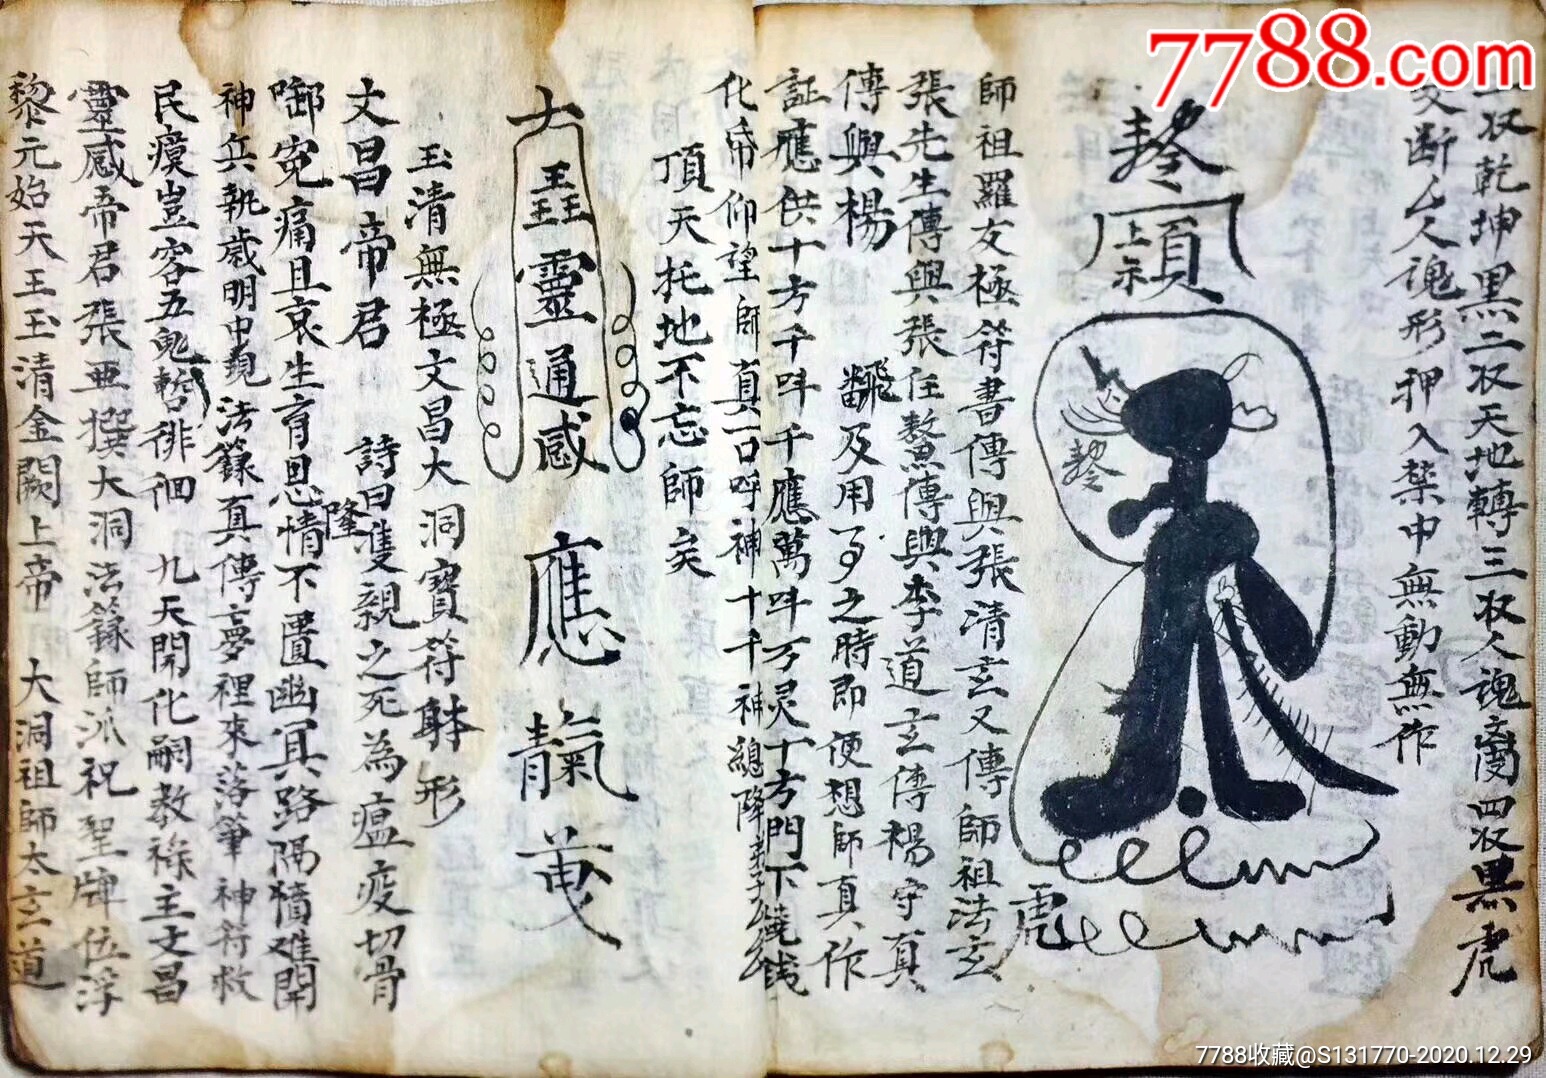 7788.com
一収乾坤黑二収天地轉三収人魂 四収黑虎
断 人魂形押入禁中無動無作
頂
虎
師祖羅友極符書傳與張清玄又傳師祖法玄
張先生傳與張任鰲傳與李道玄傳楊守真
傳與楊 翻及用 之時即便想師真作
証應供十方千吽千應萬吽万灵十方門下燒銭
化帝仰望師真一口呼神十千神總降
頂天托地不忘師矣
靈通感
應
玉清無極文昌大洞寶符躰形
文昌帝君 詩曰隻親之死為瘟疫切骨
啣冤痛且哀生育恩情不置幽冥路隔憤难開
隆
神兵執歲明中覩法籙真傳夢裡來落筆神符救
民瘼豈容五鬼暫徘徊 九天開化嗣教祿主文昌
靈感帝君張亜撰大洞法籙師派祝聖牌位浮
黎元始天王玉清金闕上帝 大洞祖師太玄道
7788收藏@S131770-2020.12.29